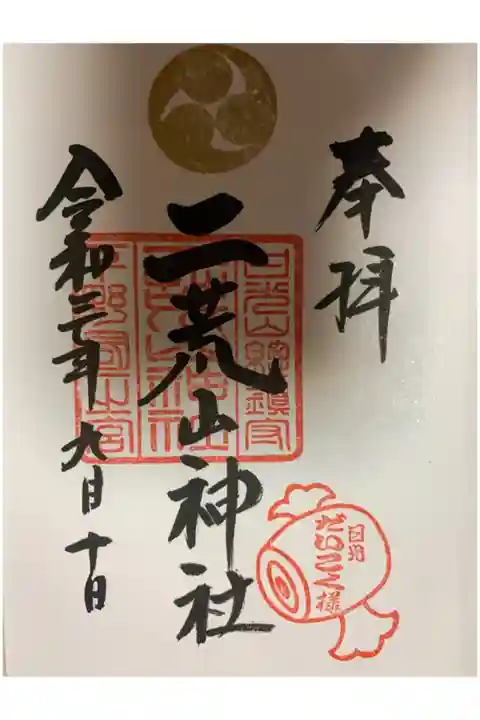 奉拝
日光山総鎮守
二荒山神社
二荒山神社
下野國一宮
日光
だいこく様
令和三年九月十日